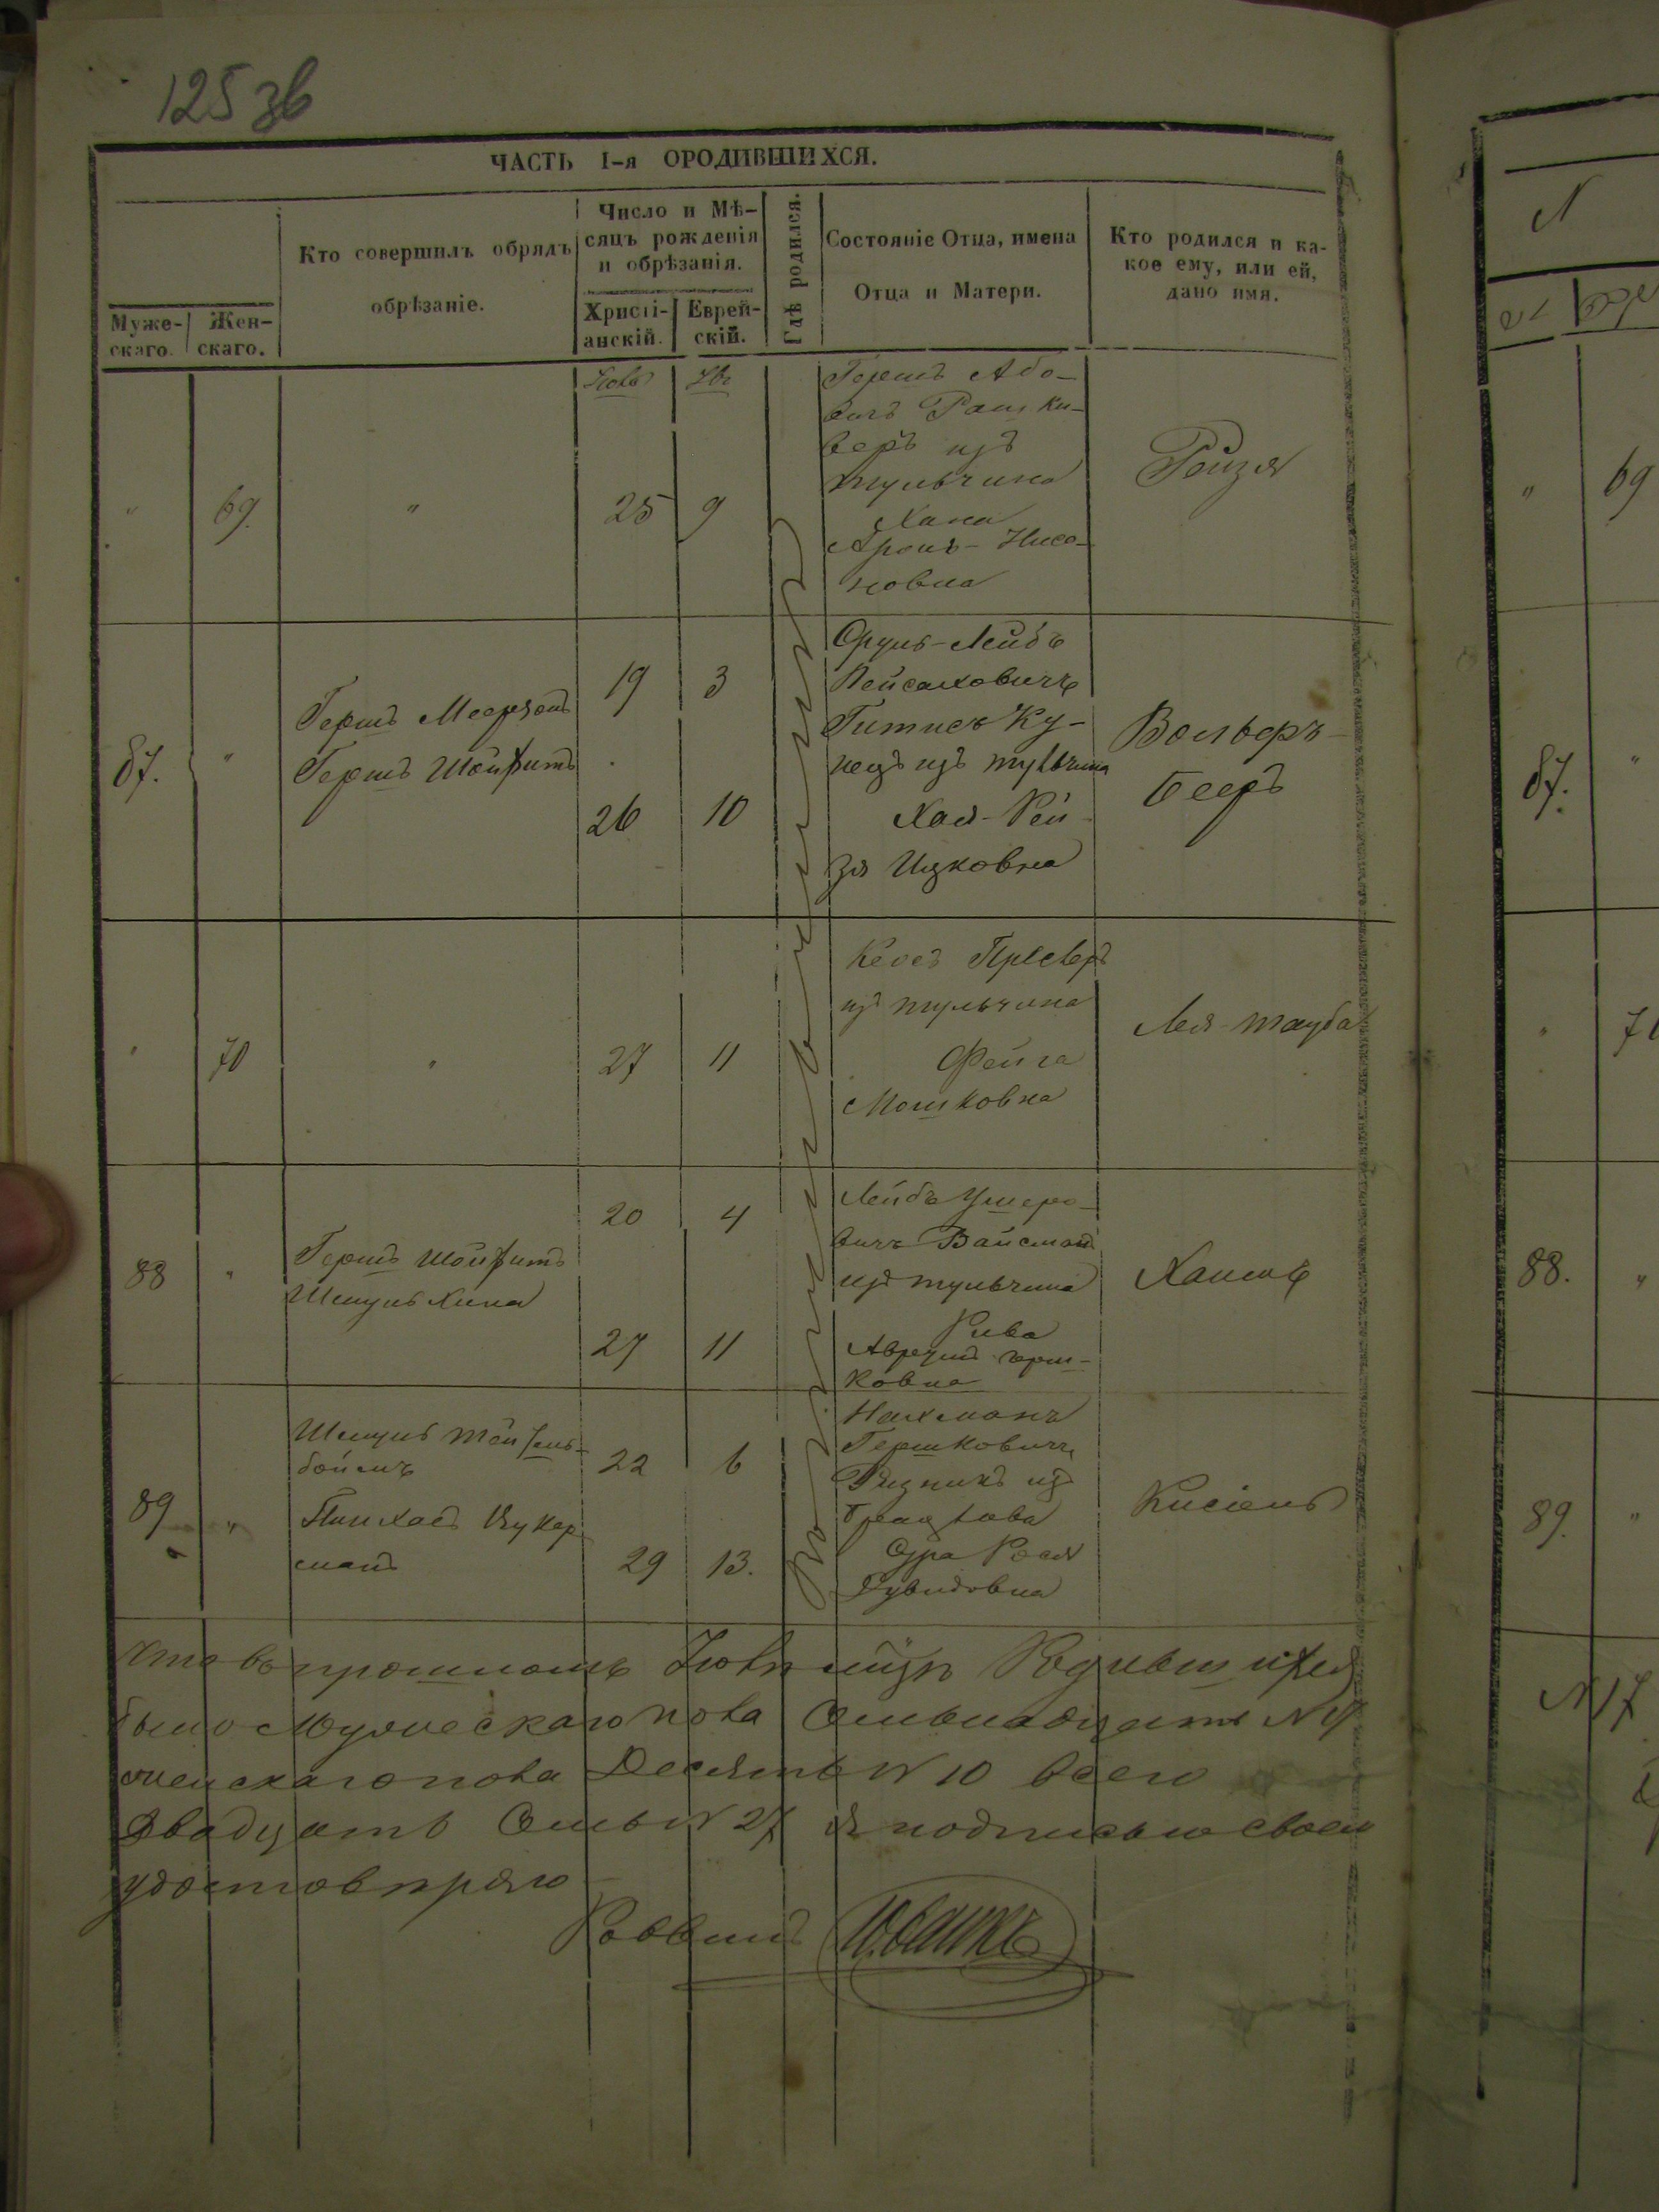 125 зв
ЧАСТЬ I-я ОРОДИВШИХСЯ.
Муже-
скаго.
Жен-
скаго.
Кто совершилъ обрядъ
обрѣзаніе.
Число и Мѣ-
сяцъ рожденія
и обрѣзанія.
Христі-
анскій.
Еврей-
скій.
Гдѣ родился.
Состояніе Отца, имена
Отца и Матери.
Кто родился и ка-
кое ему, или ей,
дано имя.
" 69. " 25 9
Гершъ Або-
вичъ Рашки-
веръ изъ
тульчина
Хана
Аронъ-Нисо-
новна
Рейзя
87. "
Гершъ
Гершъ Шойфитъ
19 3
26 10
Сруль-Лейбъ
Пейсаховичъ
Гитисъ Ку-
пецъ изъ тульчина
Хая-Рей-
зя Ицковна
Вольфъ-
Бееръ
" 70 " 27 11
изъ тульчина
Фейга
Мошковна
Лея-тауба
88 "
Гершъ Шойфитъ
Шмуль
20 4
27 11
Лейбъ Ушеро-
вичъ Вайсманъ
изъ тульчина
Рива
Аврумъ герш-
ковна
Хаимъ
89 "
Шмуль
боймъ
Пинхасъ Цукер
манъ
22 6
29 13.
Нахманъ
Гершковичъ
Рѣзникъ изъ
Брацлава
Сура Рося
Дувидовна
Кисіель
Что въ прошломъ Іюлѣ мцѣ Родившихся
было Мужескаго пола Семнадцать N 17
женскаго пола Десять N 10 всего
Двадцать Семь N 27 я подписью своею
удостовѣряю
Раввинъ
N
69
87.
88.
89.
N 17